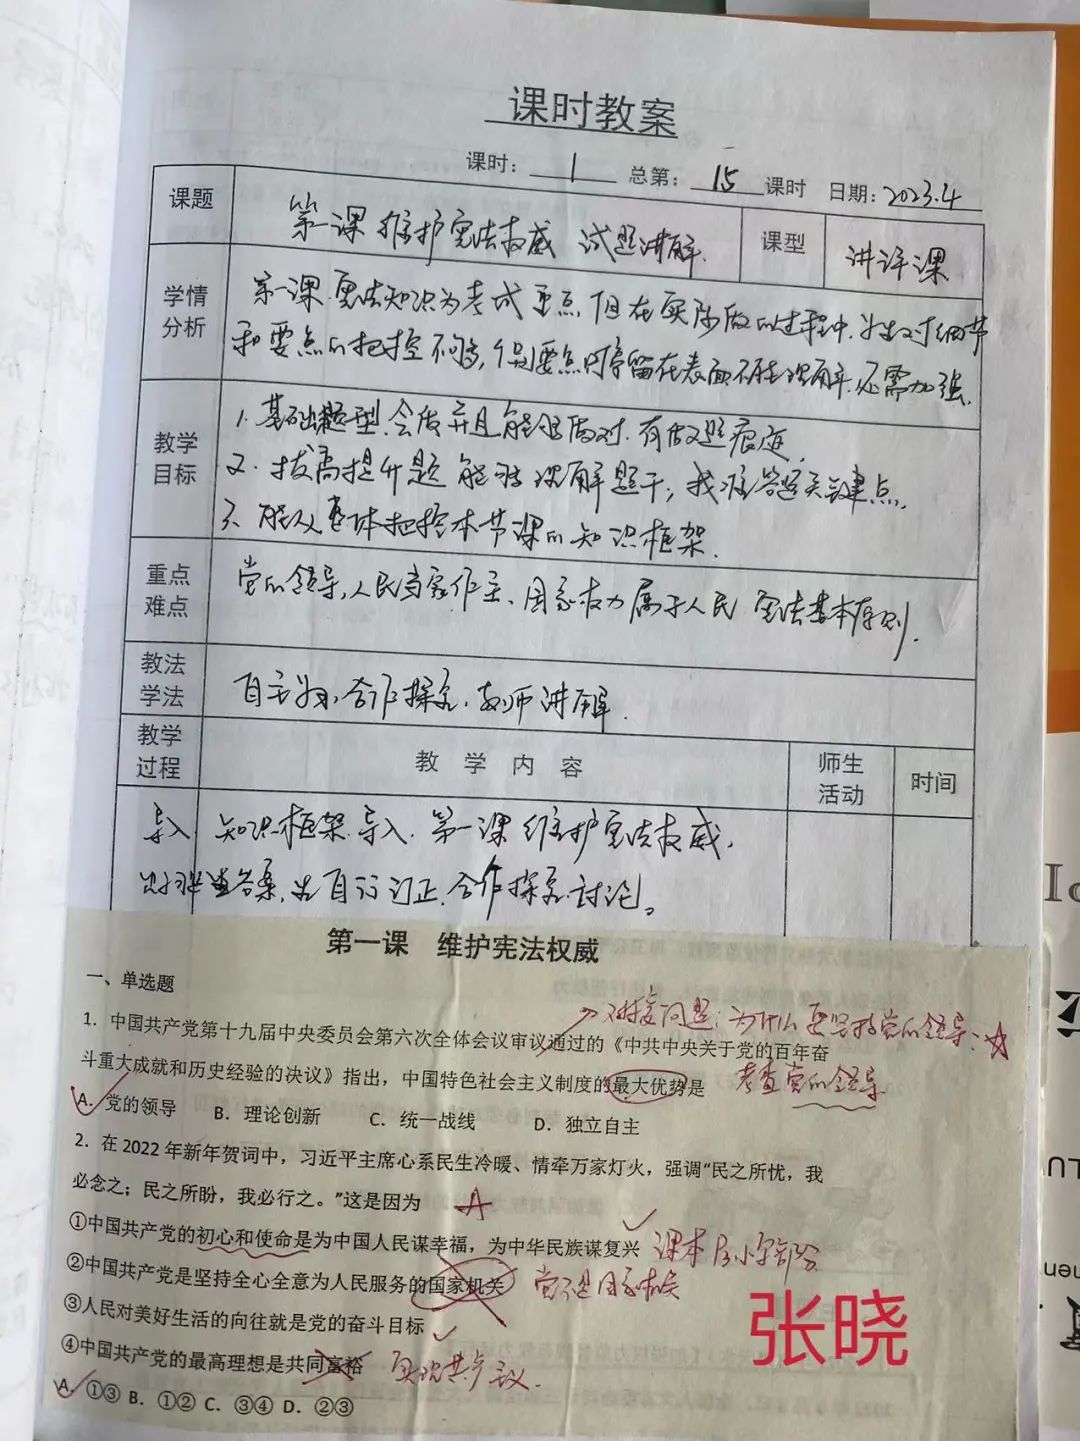 课时教案
课时: 1 总第: 15 课时 日期: 2023.4
课题 第一课 维护宪法权威 试题讲解. 课型 讲评课
学情分析 第一课 宪法知识为考试重点,但在实际做的过程中,学生对细节
和要点的把控不够,使要点停留在表面不能理解,还需加强.
教学目标 1. 基础题型,会做并且能够做对,有做题痕迹.
2. 拔高提升题 能够理解题干,找准答题关键点.
3. 能从整体把控本节课的知识框架.
重点难点 党的领导,人民当家作主、国家权力属于人民 宪法基本原则.
教法学法 自主学习,合作探究,教师讲解.
教学过程 教学内容 师生活动 时间
导入 知识框架导入,第一课 维护宪法权威,
答案,先自行订正,合作探究讨论。
第一课 维护宪法权威
一、单选题
→对接问题:为什么要坚持党的领导:☆
1. 中国共产党第十九届中央委员会第六次全体会议审议通过的《中共中央关于党的百年奋
斗重大成就和历史经验的决议》指出,中国特色社会主义制度的最大优势是 考查党的领导
A. 党的领导 B. 理论创新 C. 统一战线 D. 独立自主
2. 在 2022 年新年贺词中,习近平主席心系民生冷暖、情牵万家灯火,强调“民之所忧,我
必念之;民之所盼,我必行之。”这是因为 A
①中国共产党的初心和使命是为中国人民谋幸福,为中华民族谋复兴 ✓ 课本 小字部分
②中国共产党是坚持全心全意为人民服务的国家机关 党不是国家机关
③人民对美好生活的向往就是党的奋斗目标 ✓
④中国共产党的最高理想是共同富裕 实现共产主义.
A. ①③ B. ①② C. ③④ D. ②③
张晓